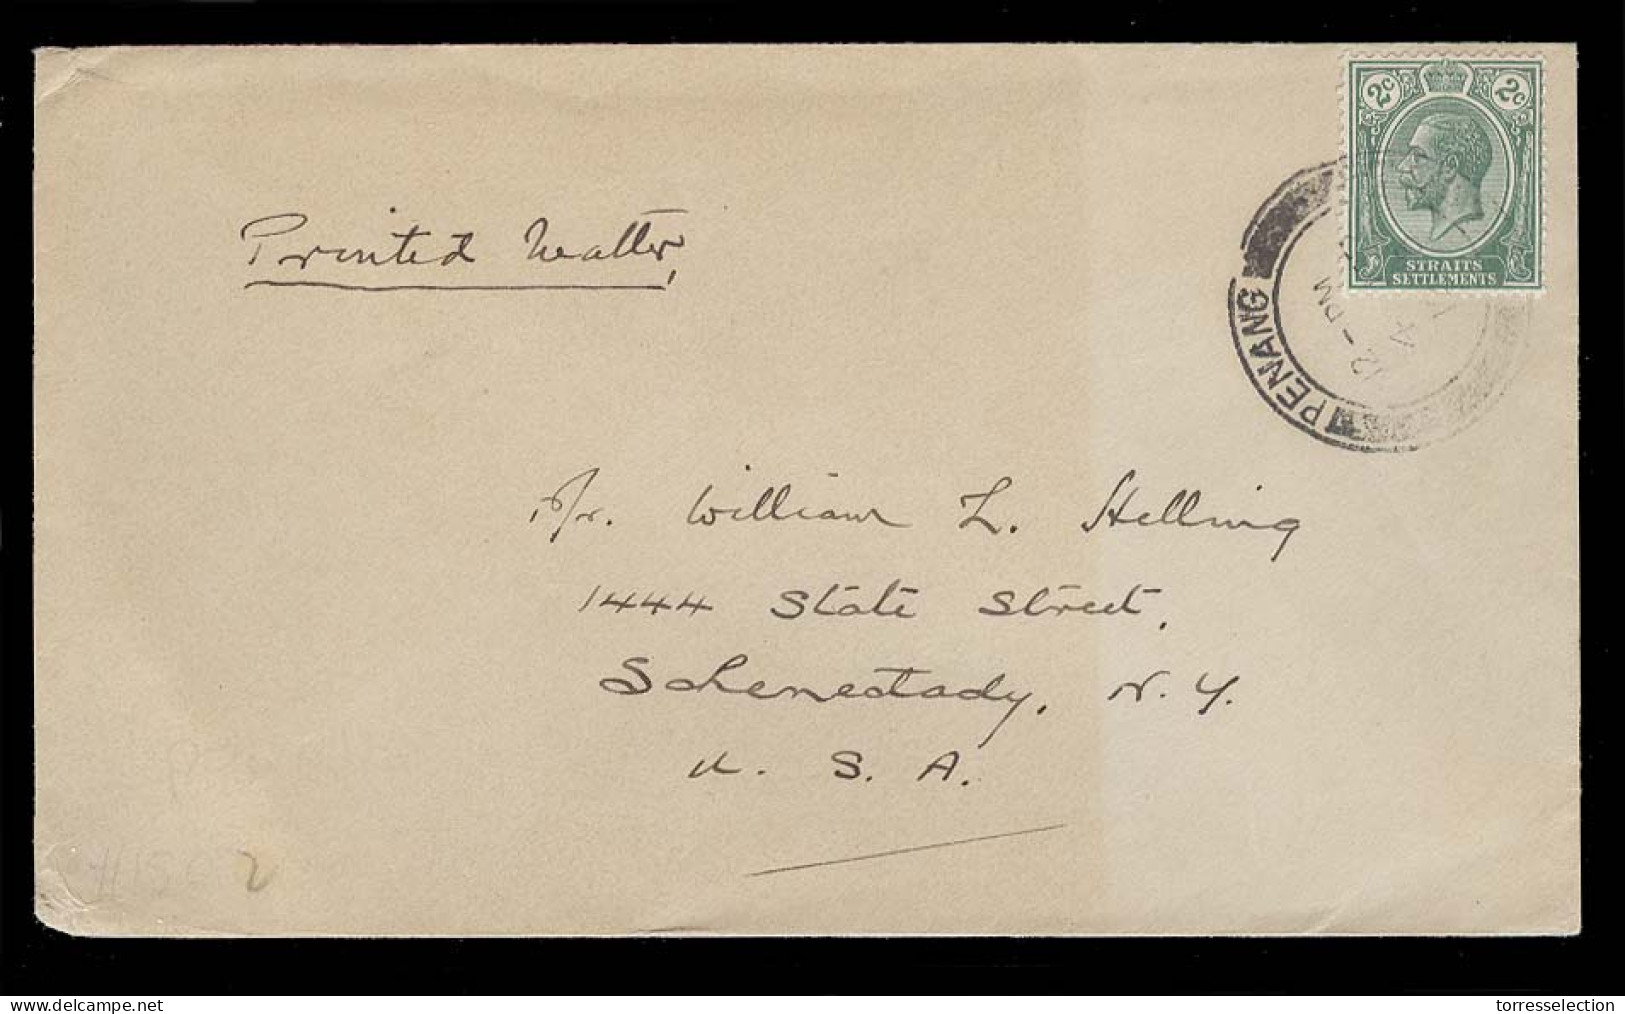 2c 2c
STRAITS
SETTLEMENTS
PENANG
2-PM
Printed Matter,
Mr. William L. Helling
1444 State Street,
Schenectady, N.Y.
U. S. A.
delcampe.net
torresselection